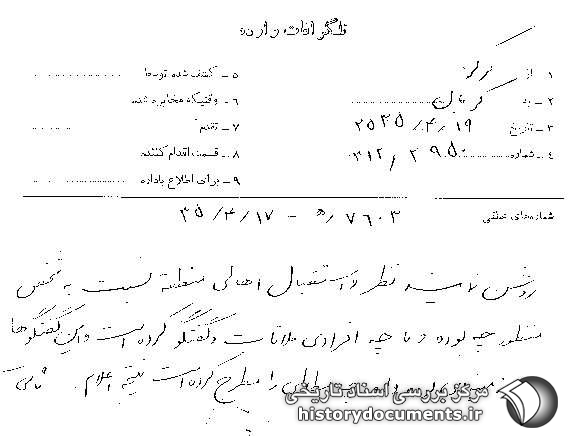 تلگرافات وارده
۱ – از مرکز
۲ – به
۳ – تاریخ ۲۵۳۵/۴/۱۹
۴ – شماره ۳۱۲/۳۹۵۰
۵ – کشف شده توسط
۶ – وقتیکه مخابره شد
۷ – تقدم
۸ – قسمت اقدام کننده
۹ – برای اطلاع باداره
شماره‌های عطفی ۷۶۰۳/ﻫ – ۳۵/۴/۱۷
روشن نمایند نظر و استقبال اهالی منطقه نسبت به شخص
منظور چه بوده و با چه افرادی ملاقات و گفتگو کرده است و این گفتگوها
را مطرح کرده است نتیجه اعلام
مرکز بررسی اسناد تاریخی
historydocuments.ir